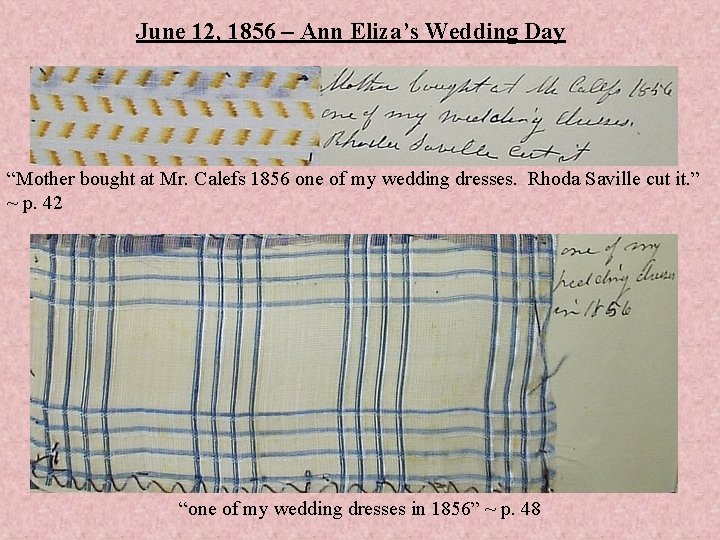 June 12, 1856 – Ann Eliza’s Wedding Day
Mother bought at Mr Calefs 1856
one of my wedding dresses.
Rhoda Saville cut it
“Mother bought at Mr. Calefs 1856 one of my wedding dresses.  Rhoda Saville cut it.”
~ p. 42
one of my
wedding dresses
in 1856
“one of my wedding dresses in 1856” ~ p. 48